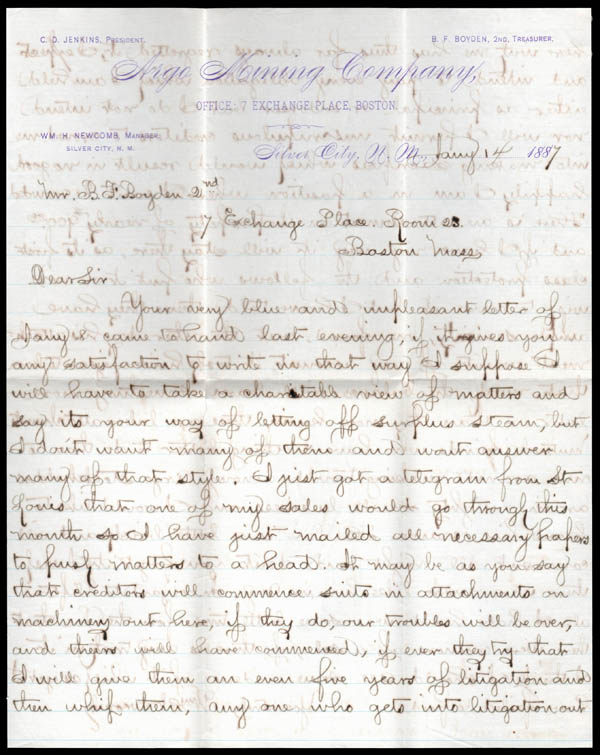 C. D. JENKINS, PRESIDENT.
B. F. BOYDEN, 2ND, TREASURER.
Argo Mining Company,
OFFICE: 7 EXCHANGE PLACE, BOSTON.
WM. H. NEWCOMB, MANAGER,
SILVER CITY, N. M.
Silver City, N. M., Jany 14 1887
Mr. B. F. Boyden 2nd
7 Exchange Place. Room 23.
Boston Mass
Dear Sir
Your very blue and unpleasant letter of
Jany 8 came to hand last evening, if it gives you
any satisfaction to write in that way I suppose I
will have to take a charitable view of matters and
say its your way of letting off surplus steam, but
I don't want many of them and wont answer
many of that style. I just got a telegram from St
Louis that one of my sales would go through this
month so I have just mailed all necessary papers
to push matters to a head. It may be as you say
that creditors will commence suits in attachments on
machinery out here, if they do, our troubles will be over,
and theirs will have commenced, if ever they try that
I will give them an even five years of litigation and
then whip them, any one who gets into litigation out